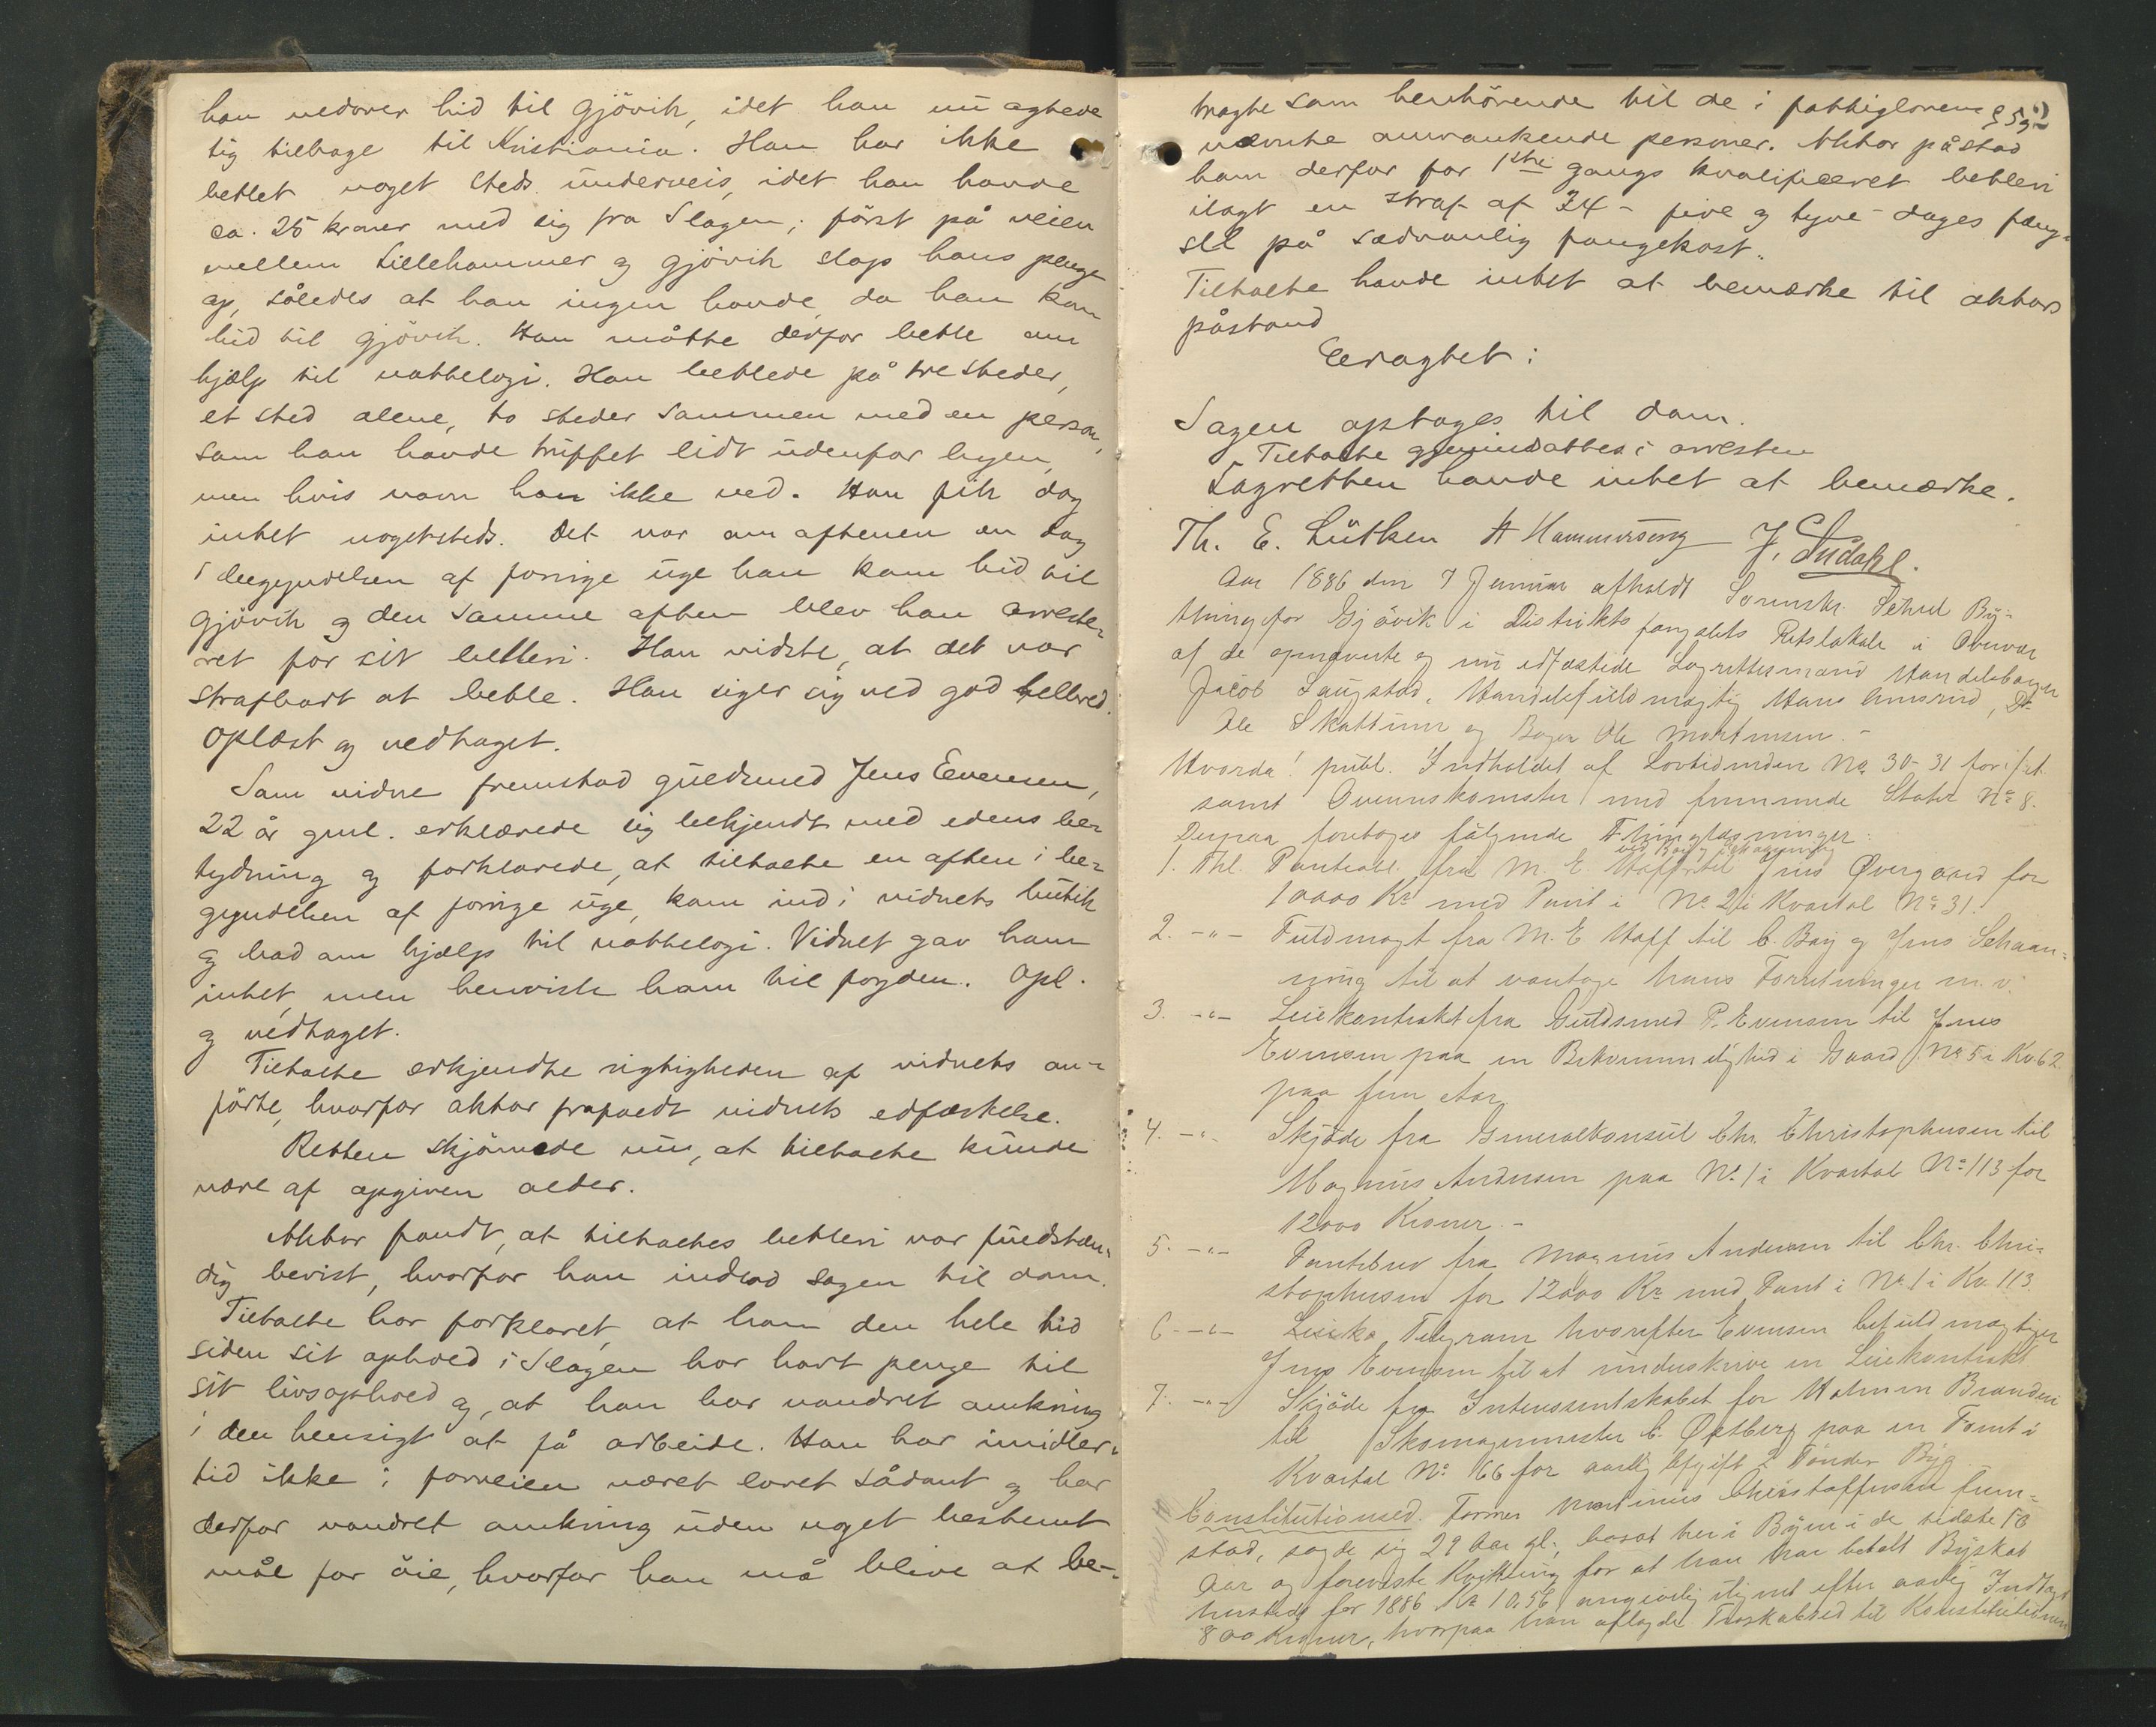 han nedover hid til Gjövik, idet han nu agtede
sig tilbage til Kristiania. Han har ikke
betlet noget steds underveis, idet han havde
ca. 25 kroner med sig fra Slagen; först på veien
mellem Lillehammer og Gjövik slap hans penge
op, således at han ingen havde, da han kom
hid til Gjövik. Han måtte derfor betle om
hjælp til nattelogi. Han betlede på tre steder,
et sted alene, to steder sammen med en person,
som han havde truffet lidt udenfor byen,
men hvis navn han ikke ved. Han fik dog
intet nogetsteds. Det var om aftenen en dag
i begyndelsen af forrige uge han kom hid til
Gjövik og den samme aften blev han arreste-
ret for sit betleri. Han vidste, at det var
strafbart at betle. Han siger sig ved god helbred.
Oplæst og vedtaget.
Som vidne fremstod guldsmed Jens Evensen,
22 år gml. erklærede sig bekjendt med edens be-
tydning og forklarede, at tiltalte en aften i be-
gyndelsen af forrige uge, kom ind i vidnets butik
og bad om hjælp til nattelogi. Vidnet gav ham
intet, men henviste ham til fogden. Opl.
og vedtaget.
Tiltalte erkjendte rigtigheden af vidnets an-
förte, hvorfor aktor frafaldt vidnets edfæstelse.
Retten skjönnede nu, at tiltalte kunde
være af opgiven alder.
Aktor fandt, at tiltaltes betleri var fuldstæn-
dig bevist, hvorfor han indlod sagen til dom.
Tiltalte har forklaret, at han den hele tid
siden sit ophold i Slagen har havt penge til
sit livsophold og, at han har vandret omkring
i den hensigt at få arbeide. Han har imidler-
tid ikke i forveien været lovet sådant og har
derfor vandret omkring uden noget bestemt
mål for öie, hvorfor han må blive at be-
tragte som henhörende til de i fattiglovens § 59
nævnte omvankende personer. Aktor påstod
ham derfor for 1ste gangs kvalificeret betleri
ilagt en straf af 24 - fire og tyve - dages fæng-
sel på sædvanlig fangekost.
Tiltalte havde intet at bemærke til aktors
påstand
Eragtet:
Sagen optages til dom.
Tiltalte gjenindsattes i arresten
Lagretten havde intet at bemærke.
Th. E. Lütken A Hammerseng J. Sudahl.
Aar 1886 den 7 Januar afholdt Sorenskr. By-
thing for Gjövik i Distriktsfængslets Retslokale i Overvær
af de opnævnte og nu edfæstede Lagrettesmænd Handelsborger
Jacob Laugstad, Handelsfuldmægtig Hans Amsrud, Do
Ole Skattum og Bager Ole Mortensen. -
Hvorda! publ. Indholdet af Lovtidenden No 30-31 for f. A.
samt Overenskomster med fremmede Stater No 8.
Derpaa foretoges fölgende Thinglæsninger:
1. Thl. Panteobl. fra M. E. Hoff ved Baÿ og Schaanning til Jens Øvergaard for
10000 Kr med Pant i No 2 i Kvartal No 31.
2. -"- Fuldmagt fra M. E Hoff til C. Baÿ og Jens Schaan-
ning til at varetage hans Forretninger m. v.
3. -"- Leiekontrakt fra Guldsmed P. Evensen til Jens
Evensen paa en Bekvemmelighed i Gaard No 5 i Kv 62
paa fem Aar.
4. -"- Skjöde fra Generalkonsul Chr. Christophersen til
Magnus Andersen paa No 1 i Kvartal No 113 for
12000 Kroner. -
5. -"- Pantebrev fra Magnus Andersen til Chr. Chri-
stophersen for 12000 Kr med Pant i No 1 i Kv. 113
6 -"- Telegram hvorefter Evensen befuldmægtiger
Jens Evensen til at underskrive en Leiekontrakt
7. -"- Skjöde fra Interessentskabet for Holmen Brænderi
til Skomagermester C. Østberg paa en Tomt i
Kvartal No 66 for aarlig Afgift 2 Tönder Byg
Constitutionsed. Former Martinus Christoffersen frem-
stod, sagde sig 29 Aar gl., bosat her i Byen i de sidste 10
Aar og foreviste Kvittering for at han har betalt Byskat
hersteds for 1886 Kr 10.56 angivelig ilignet efter aarlig Indtægt
800 Kroner, hvorpaa han aflagde Troskabsed til Konstitutionen